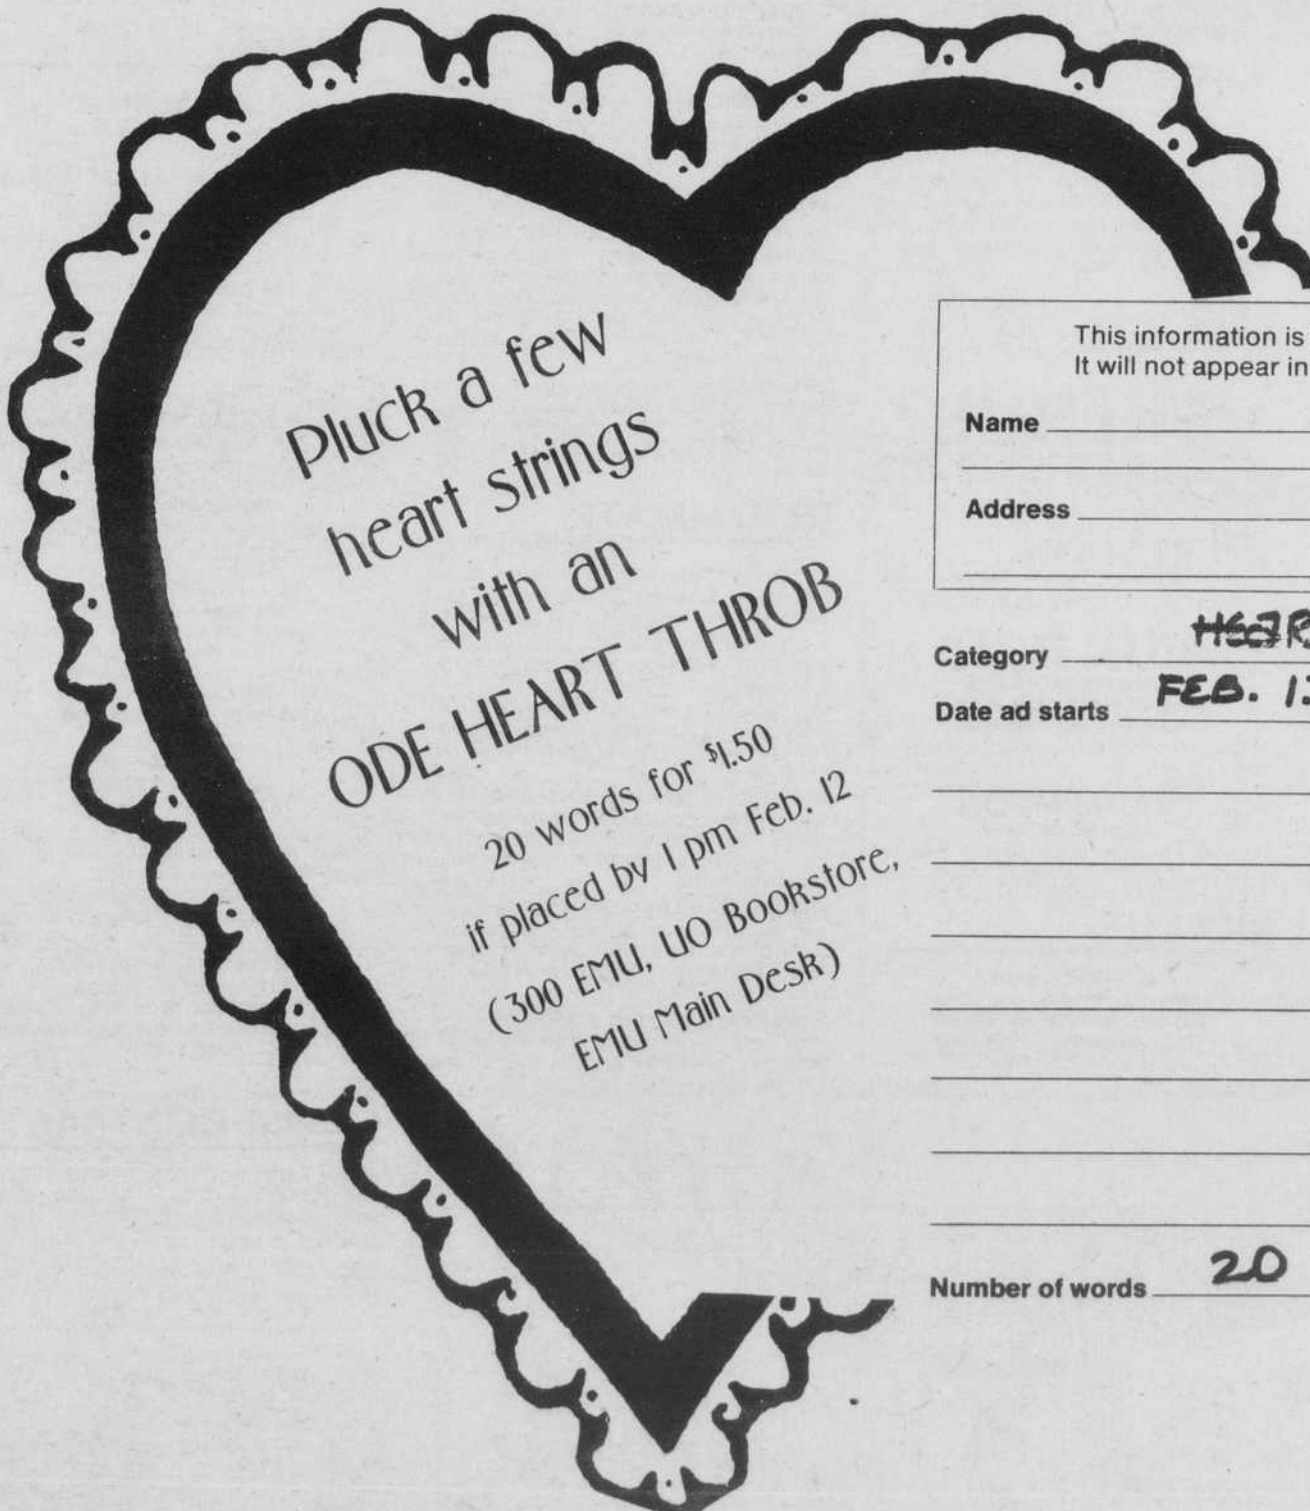 Pluck a few
heart strings
with an
ODE HEART THROB
20 words for $1.50
if placed by 1 pm Feb. 12
(300 EMU, UO Bookstore,
EMU Main Desk)
This information is
It will not appear in
Name
Address
Category
Date ad starts FEB.
Number of words 20